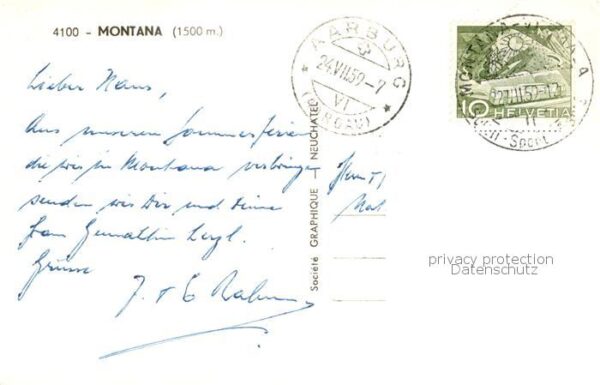 4100 - MONTANA (1500 m.)
Lieber Hans,
Aus unseren Sommerferien
die wir in Montana verbringen
senden wir Dir und Deine
Frau Gemahlin herzl.
Grüsse
J. + E.
Société GRAPHIQUE - NEUCHATEL
AARBURG
24.VII.59-7
VI
(AARGAU)
Herrn
MONTANA-VERMALA
10 HELVETIA
Sport
privacy protection
Datenschutz